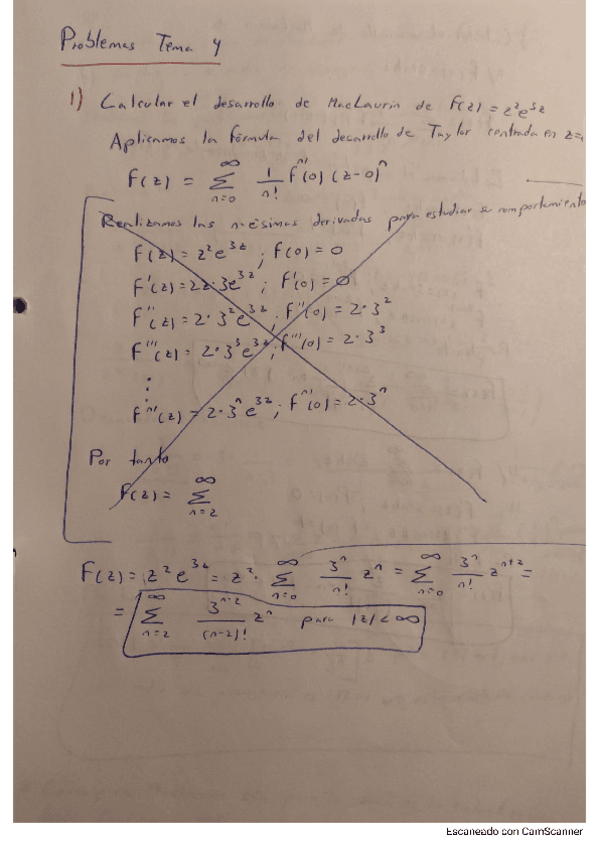 Problemas Tema 4
1) Calcular el desarrollo de MacLaurin de f(z) = z²e³ᶻ
Aplicamos la fórmula del desarrollo de Taylor centrada en z=
f(z) = ∑_{n=0}^{∞} 1/n! fⁿ⁾(0) (z-0)ⁿ
Realizamos las n-ésimas derivadas para estudiar su comportamiento
f(z) = z²e³ᶻ ; f(0) = 0
f'(z) = 2z·3e³ᶻ ; f'(0) = 0
f''(z) = 2·3²e³ᶻ ; f''(0) = 2·3²
f'''(z) = 2·3³e³ᶻ ; f'''(0) = 2·3³
⋮
fⁿ⁾(z) = 2·3ⁿe³ᶻ ; fⁿ⁾(0) = 2·3ⁿ
Por tanto
f(z) = ∑_{n=2}^{∞}
f(z) = z²e³ᶻ = z²· ∑_{n=0}^{∞} 3ⁿ/n! zⁿ = ∑_{n=0}^{∞} 3ⁿ/n! zⁿ⁺² =
= ∑_{n=2}^{∞} 3ⁿ⁻²/(n-2)! zⁿ para |z| < ∞
Escaneado con CamScanner